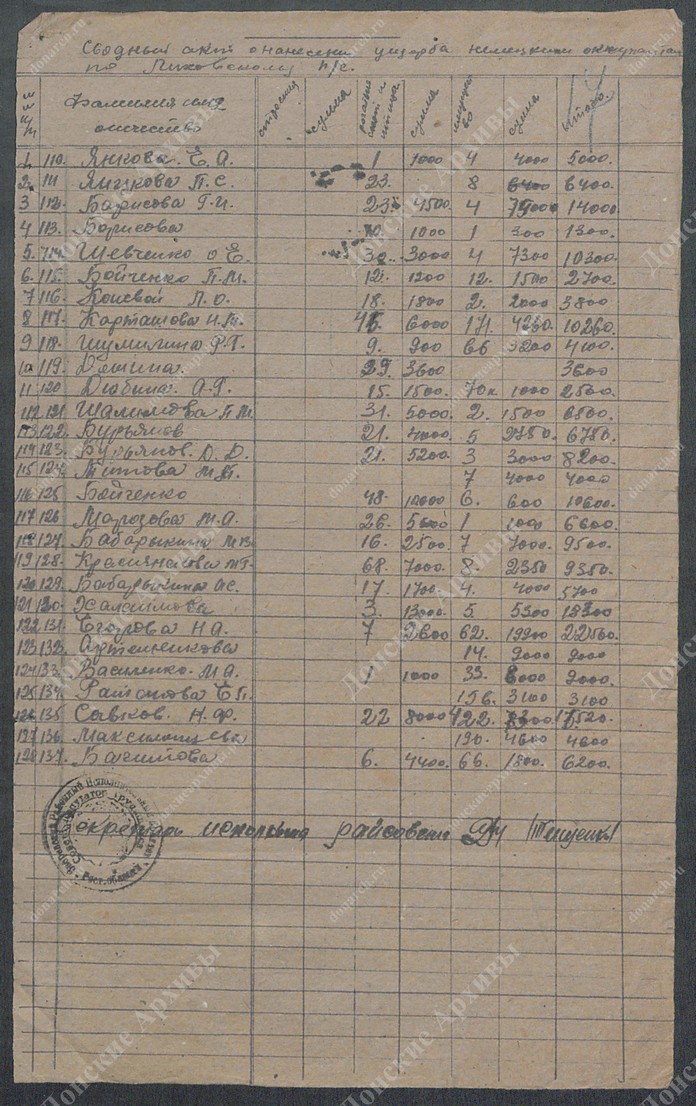 Сводный акт о нанесении ущерба немецкими оккупантами
по Лиховскому п/с.
Фамилия имя отчество строения сумма рогатый скот и птица сумма имущество сумма Итого.
1. 110. Янкова Е. А. 1 1000 4 4000 5000.
2. 111 П. С. 23. 8 6400 6400.
3 112. Барисова Г. И. 23 4500. 4 14000
4 113. Борисова 10. 1000 1 300 1300.
5. 114. Шевченко Е. 30 3000 4 7300 10300.
6. 115. Бойченко П. М. 12. 1200 12. 1500 2700.
7 116. Кошевой Л. О. 18. 1800 2. 2000 3800
8 117. Карташова Н. 6000 171. 4260. 10260.
9 118. Шумилина Р. Г. 9. 900 66 3200 4100.
10 119. Дёшина 29. 3600 3600
11 120 Дюбина А. Г. 15. 1500. 70 1000 2500.
12 121. Шалимова П. М. 31. 5000. 2. 1500 6500.
113 122. Бурьянов 21. 4000. 5 6750.
114 123. Бурьянов. Д. Д. 21. 5200 3 3000 8200.
115 124. Титова М. 7 4000 4000
116 125 Бойченко 48. 10000 6. 600 10600.
117 126 Марозова М. А. 26. 5600 1 1000 6600.
118 127. Бабарыкина М. 16 2500. 7 7000. 9500.
119 128. 68. 7000. 8. 2350 9350.
120 129. Бабарыкина 17. 1700 4. 4000 5700
121 130. Халимова 3. 13000. 5 5300 18300
122 131. Егорова Н А. 7 2600 62. 19900 22500.
123 132. Артеменкова 14. 2000 2000
124 133. Василенко. М. А. 1 1000 33. 8000 9000.
125 134. Е. 156. 3100 3100
126 135. Савков. Н. Ф. 22 8000 422.
127 136. 190. 4600 4600
128 137. 6. 4400. 66. 1800. 6200.
Секретарь исполкома райсовета /Тищенко/
Рост. области
Донские Архивы
donarch.ru